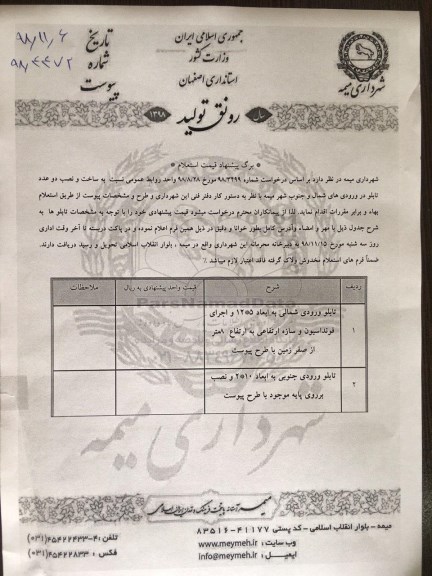 جمهوری اسلامی ایران
وزارت کشور
استانداری اصفهان
شهرداری میمه
تاریخ ۹۸/۱۱/۶
شماره ۹۸/۴۴۷۲
پیوست
سال رونق تولید ۱۳۹۸
* برگ پیشنهاد قیمت استعلام *
شهرداری میمه در نظر دارد بر اساس درخواست شماره ۹۸/۳۲۹۹ مورخ ۹۸/۸/۲۸ واحد روابط عمومی نسبت به ساخت و نصب دو عدد
تابلو در ورودی های شمال و جنوب شهر میمه با نظر به دستور کار دفتر فنی این شهرداری و طرح و مشخصات پیوست از طریق استعلام
بهاء و برابر مقررات اقدام نماید. لذا از پیمانکاران محترم درخواست میشود قیمت پیشنهادی خود را با توجه به مشخصات تابلو ها به
شرح جدول ذیل با مهر و امضاء وآدرس کامل بطور خوانا و دقیق در ذیل همین فرم اعلام نموده و در پاکت دربسته تا آخر وقت اداری
روز سه شنبه مورخ ۹۸/۱۱/۱۵ به دبیرخانه محرمانه این شهرداری واقع در میمه ، بلوار انقلاب اسلامی تحویل و رسید دریافت دارند.
ضمناً فرم های استعلام مخدوش ولاک گرفته فاقد اعتبار لازم میباشد٪
ردیف شرح قیمت واحد پیشنهادی به ریال ملاحظات
۱ تابلو ورودی شمالی به ابعاد ۵*۱۲ و اجرای
فونداسیون و سازه ارتفاعی به ارتفاع ۸متر
از صفر زمین با طرح پیوست
۲ تابلو ورودی جنوبی به ابعاد ۱۰*۲ و نصب
برروی پایه موجود با طرح پیوست
شهرداری میمه
میمه - بلوار انقلاب اسلامی - کد پستی ۴۱۱۷۷-۸۳۵۱۶
تلفن: ۴-۴۵۴۲۲۴۳۳(۰۳۱)
وب سایت: www.meymeh.ir
فکس: ۴۵۴۲۲۸۳۳(۰۳۱)
ایمیل: info@meymeh.ir